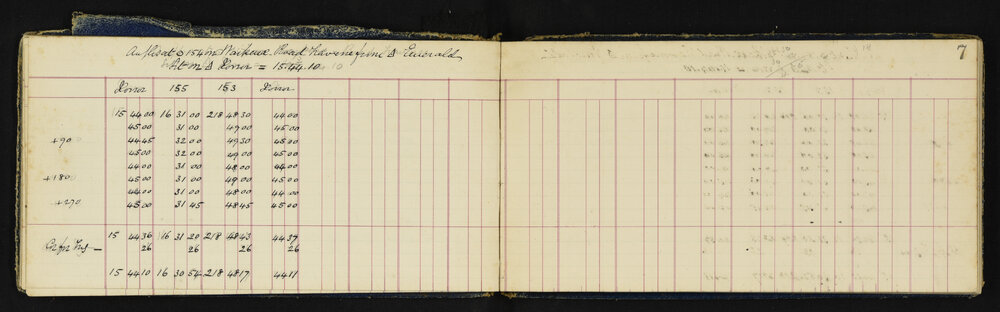 7
Angles at ⊙ 154 on Waikeua Road Traverse from Δ Emerald
Set on Δ Donor = 15.44.10
Donor 155 153 Donor
15 44 00 16 31 00 218 48 30 44 00
45 00 31 00 49 00 45 00
+90 44 45 32 00 49 30 45 00
45 00 32 00 49 00 45 00
44 00 31 00 48 00 44 00
+180 45 00 31 00 49 00 45 00
44 00 31 00 48 00 44 00
+270 45 00 31 45 48 45 45 00
15 44 36 16 31 20 218 48 43 44 37
26 26 26 26
15 44 10 16 30 54 218 48 17 44 11